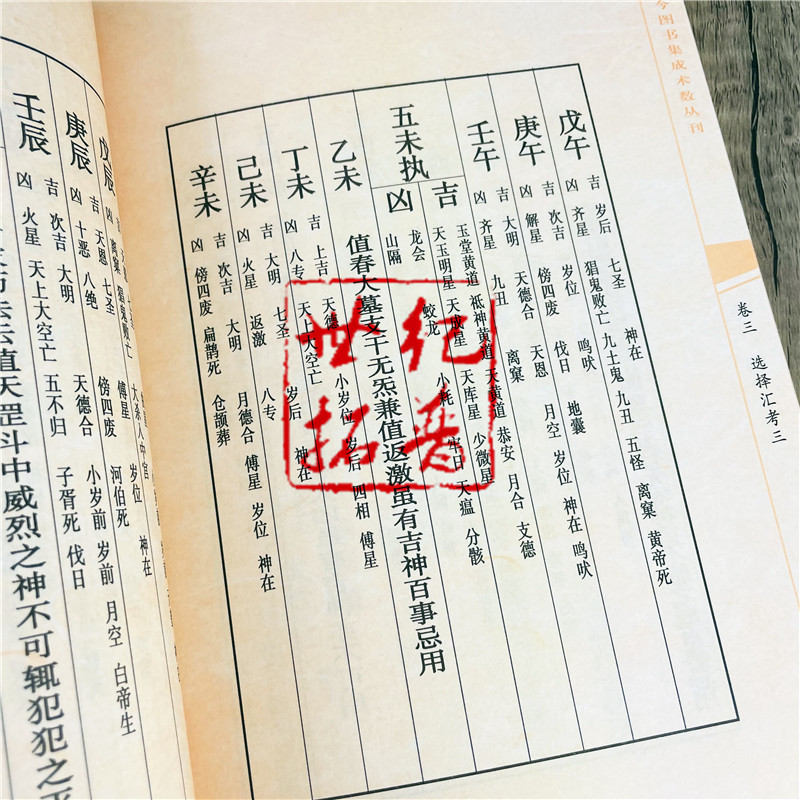 今图书集成术数丛刊
卷三 选择汇考三
戊午 吉 岁后 七圣 神在
凶 齐星 猖鬼败亡 九土鬼 九丑 五怪 离窠 黄帝死
庚午 吉 次吉 岁位 鸣吠 月空 岁位 神在 鸣吠
凶 解星 傍四废 伐日 地囊
壬午 吉 大明 天德合 天恩 恭安 月合 支德
凶 齐星 九丑 离窠
五未执
吉 玉堂黄道 祗神黄道 天黄道
天玉明星 天成星 天库星 少微星
凶 龙会 蛟龙 小耗 牢日 天瘟 分骸
山隔
值春大墓支干无炁兼值返激虽有吉神百事忌用
乙未 吉 上吉 天德 小岁位 岁后 四相 傅星
丁未 吉 大明 七圣 岁后 神在
凶 八专 天上大空亡
己未 吉 大明 月德合 傅星 岁位 神在
凶 火星 返激 八专
辛未 吉 次吉 大明
凶 傍四废 扁鹊死 仓颉葬
戊辰 吉 天恩 七圣 岁位 神在
凶 离窠 猖鬼败亡 傍四废 傅星 大杀入中宫 河伯死
庚辰 吉 次吉 大明 天德合 小岁前 岁前 月空 白帝生
凶 十恶 八绝 五不归 子胥死 伐日
壬辰
凶 火星 天上大空亡
去云值天罡斗中威烈之神不可辄犯犯之
世纪
拓普